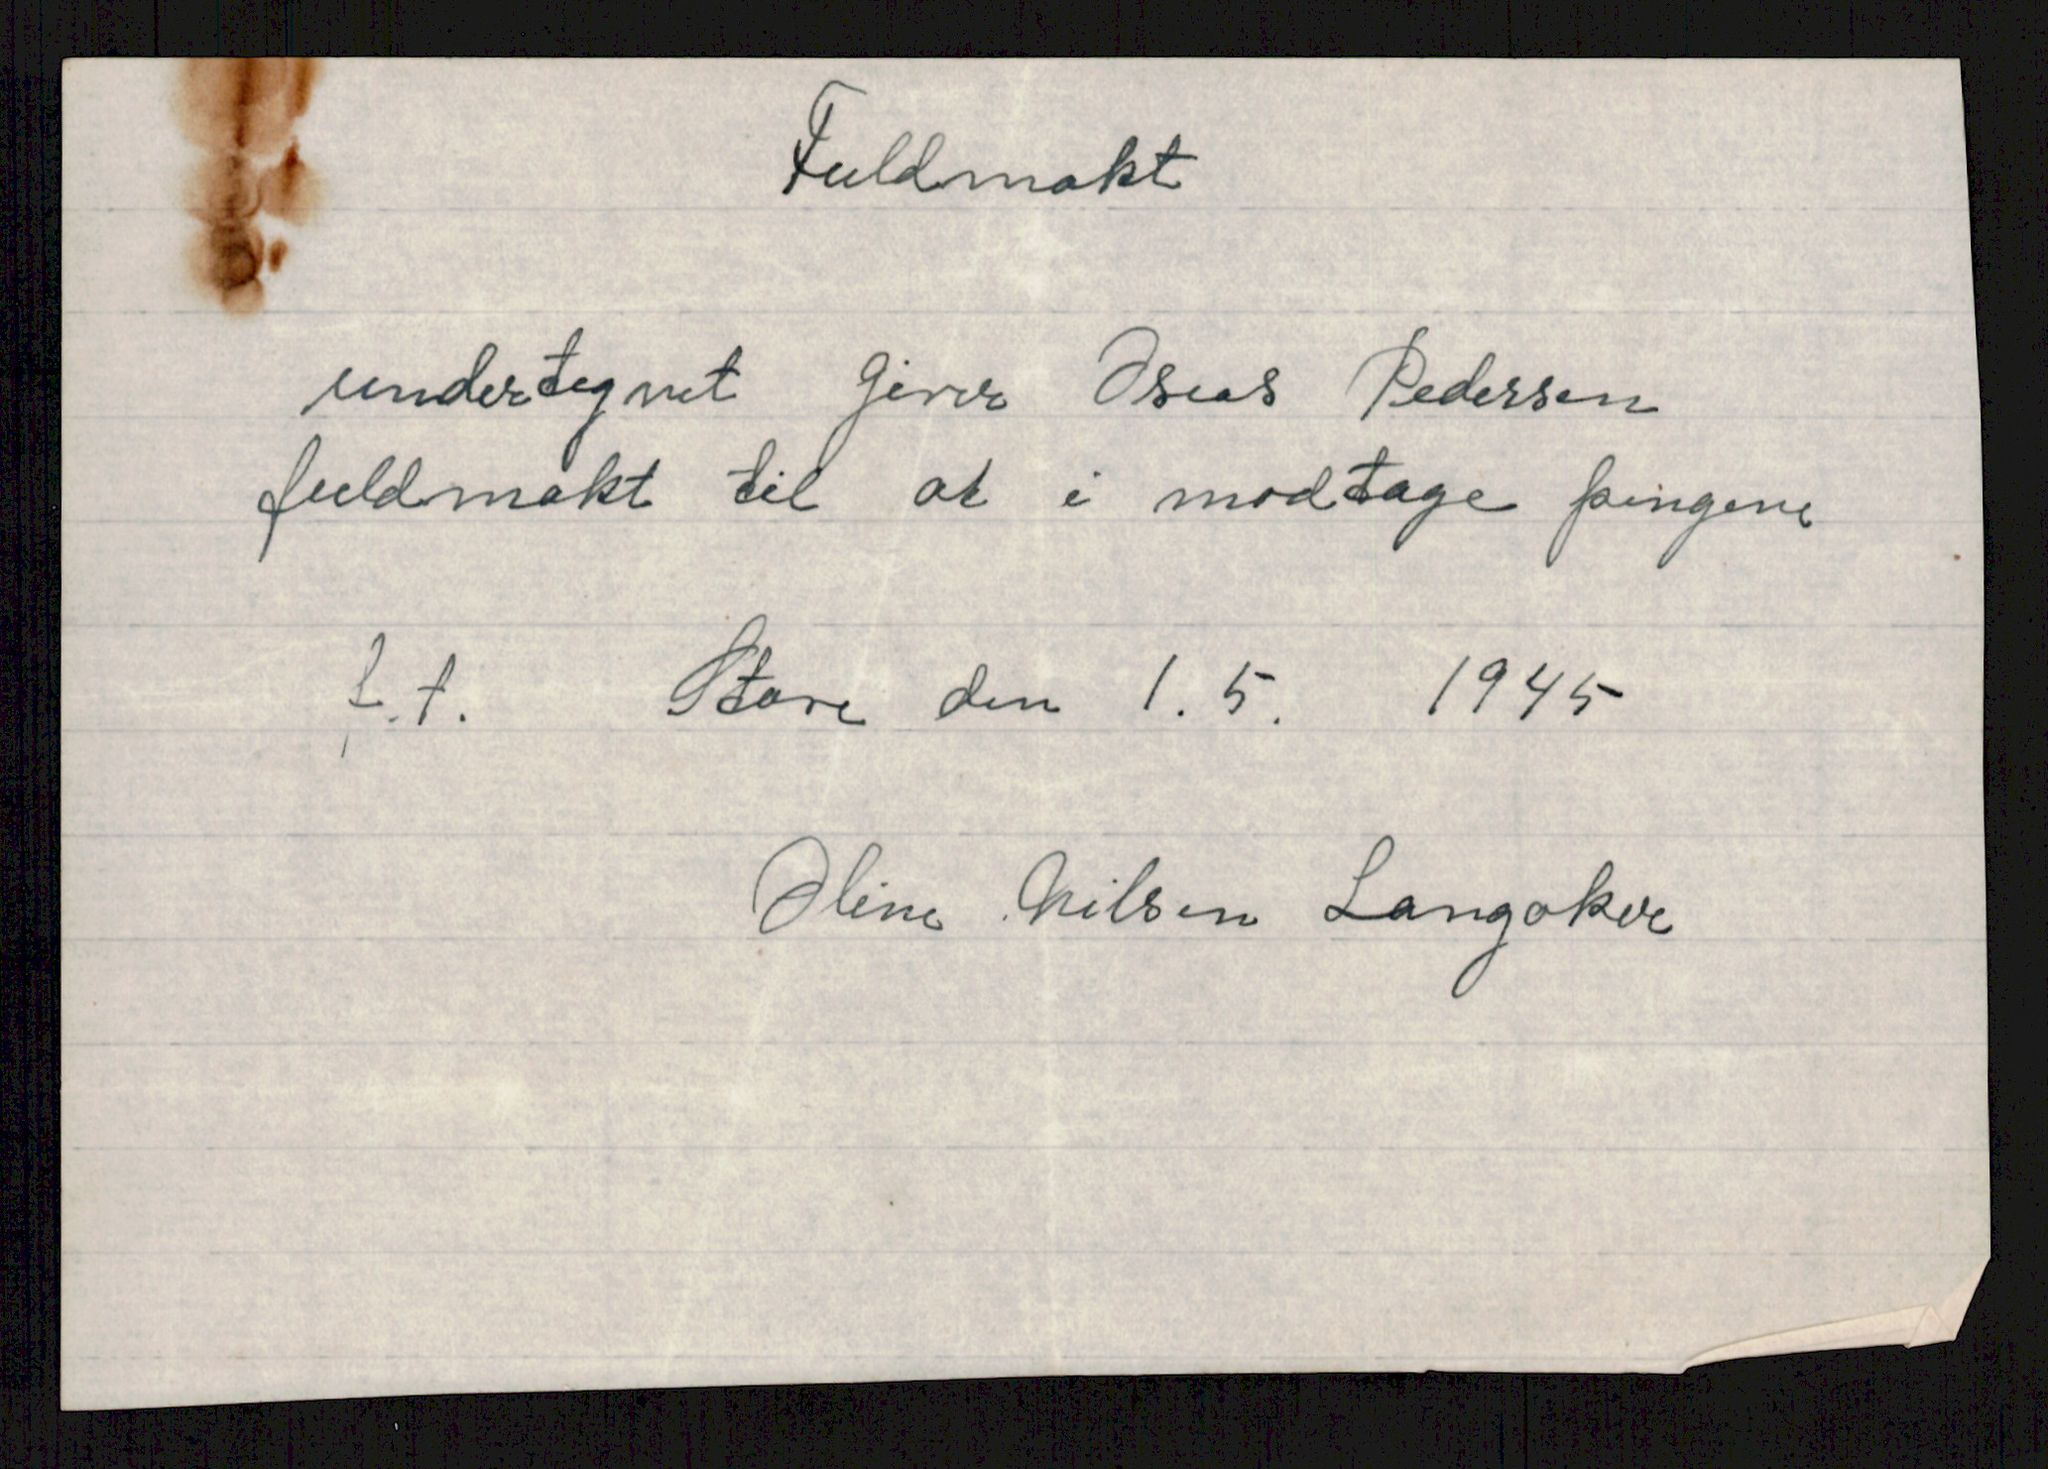 Fuldmakt
undertegnet giver Oseas Pedersen
fuldmakt til at i modtage pingene
f.t. Stave den 1.5. 1945
Oline Nilsen Langaker